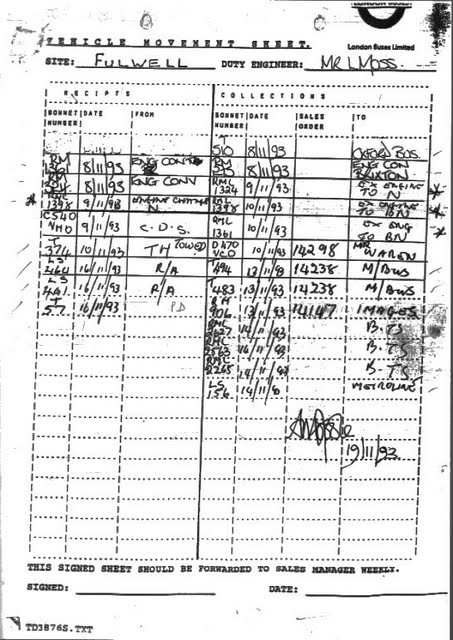 London Buses Limited
VEHICLE MOVEMENT SHEET.
SITE: FULWELL DUTY ENGINEER: MR L MOSS.
RECEIPTS COLLECTIONS
BONNET NUMBER DATE FROM BONNET NUMBER DATE SALES ORDER TO
510 8/11/93 OXFORD BUS.
RM 8/11/93 ENG RM 8/11/93 ENG CON BRIXTON
RM 8/11/93 ENG CONV 1324 9/11/93 EX ENGINE TO BN
1398 9/11/93 ENGINE RML 1398 10/11/93 EX ENGINE TO BN
NHO 9/11/93 C.D.S. RML 1361 10/11/93 EX ENG TO BN
T 374 10/11/93 TH TOWED VCO 10/11/93 14298 MR
LS 464 16/11/93 R/A T 494 13/11/93 14238 M/BUS
LS 461 16/11/93 R/A T 483 13/11/93 14238 M/BUS
T 57 16/11/93 PD RM 906 13/11/93 14147 IMAGES
RML 2627 14/11/93 B.TS
RML 2563 14/11/93 B.TS
2265 14/11/93 B.TS
LS 156 14/11/93 METROLINE
19/11/93
THIS SIGNED SHEET SHOULD BE FORWARDED TO SALES MANAGER WEEKLY.
SIGNED: DATE:
TD3876S.TXT